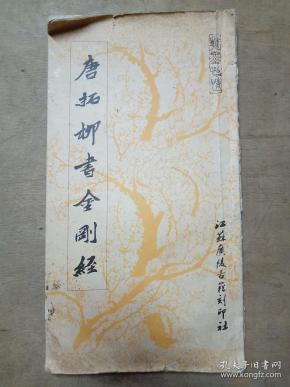 唐拓柳書金剛經
江蘇廣陵古籍刻印社
孔夫子旧书网